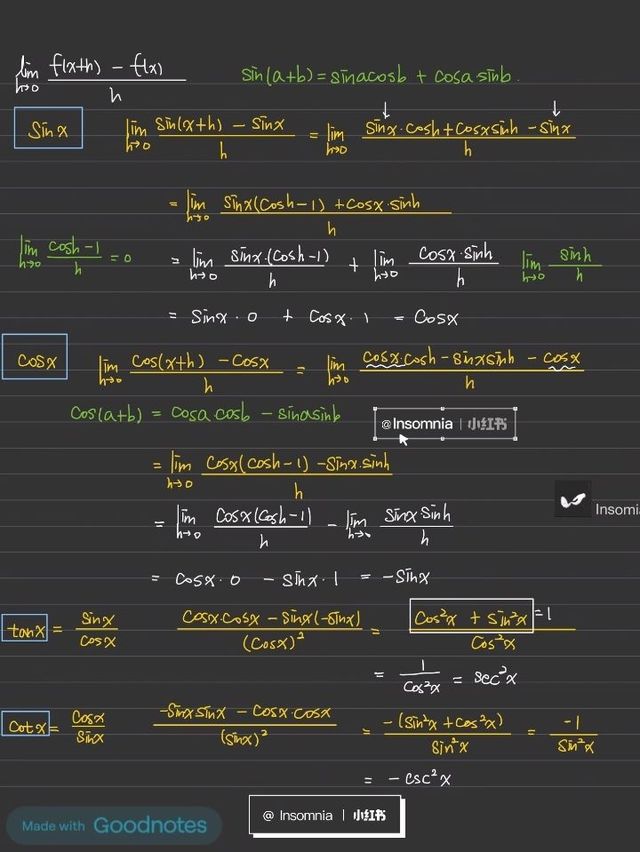 lim h→0 (f(x+h) - f(x))/h    sin(a+b) = sina cosb + cosa sinb.
Sinx    lim h→0 (Sin(x+h) - Sinx)/h = lim h→0 (Sinx·Cosh + Cosx sinh - Sinx)/h
= lim h→0 (Sinx(Cosh-1) + Cosx·Sinh)/h
lim h→0 (Cosh-1)/h = 0    = lim h→0 (Sinx·(Cosh-1))/h + lim h→0 (Cosx·Sinh)/h    lim h→0 Sinh/h
= Sinx·0 + Cosx·1 = Cosx
Cosx    lim h→0 (Cos(x+h) - Cosx)/h = lim h→0 (Cosx·Cosh - Sinxsinh - Cosx)/h
Cos(a+b) = Cosa cosb - sinasinb
@Insomnia | 小红书
= lim h→0 (Cosx(Cosh-1) - Sinx·sinh)/h
= lim h→0 (Cosx(Cosh-1))/h - lim h→0 (Sinx Sinh)/h
Insomi
= Cosx·0 - Sinx·1 = -Sinx
tanx = Sinx/Cosx    (Cosx·Cosx - Sinx(-Sinx))/(Cosx)² = (Cos²x + Sin²x)/Cos²x    =1
= 1/Cos²x = Sec²x
Cotx = Cosx/Sinx    (-Sinx sinx - Cosx·Cosx)/(Sinx)² = -(Sin²x + Cos²x)/Sin²x = -1/Sin²x
= -Csc²x
@ Insomnia | 小红书
Made with Goodnotes